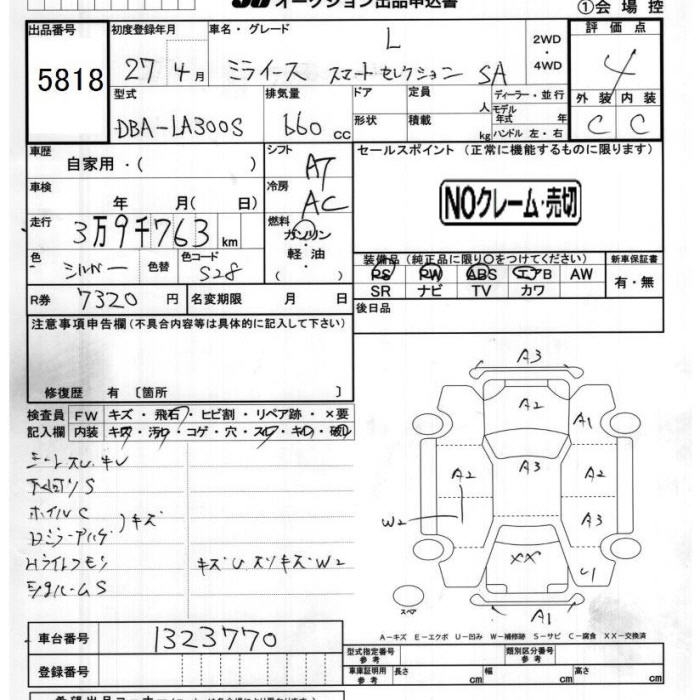 オークション出品申込書
①会場控
出品番号 初度登録年月 車名・グレード 2WD ・ 4WD 評価点
5818 27年 4月 L ミライース スマートセレクション SA 4
型式 排気量 ドア 定員 人 ディーラー・並行 外装 内装
DBA-LA300S 660 cc 形状 積載 kg モデル年式 年 ハンドル 左・右 C C
車歴 自家用・( ) シフト AT セールスポイント (正常に機能するものに限ります)
車検 年 月( 日) 冷房 AC NOクレーム・売切
走行 3万9千763 km 燃料 ガソリン・軽油・( )
色 シルバー 色替 色コード S28
装備品 (純正品に限り○をつけてください) 新車保証書
PS PW ABS エアB AW 有・無
SR ナビ TV カワ
R券 7320 円 名変期限 月 日 後日品
注意事項申告欄 (不具合内容等は具体的に記入して下さい)
修復歴 有 〔箇所 〕
検査員 FW キズ・飛石・ヒビ割・リペア跡・×要
記入欄 内装 キズ・汚れ・コゲ・穴・スレ・キレ・破レ
シートスレ キレ
下廻り S
ホイル C
ドミラーアハゲ )キズ
Hライトクモリ キズ U スソキズ W2
A3
A2
A1
A2
A3
A2
W2
A3
XX
A1
スペア
A-キズ E-エクボ U-凹み W-補修跡 S-サビ C-腐食 XX-交換済
車台番号 1323770
登録番号
型式指定番号 参考 類別区分番号 参考
車庫証明用 参考 長さ cm 幅 cm 高さ cm